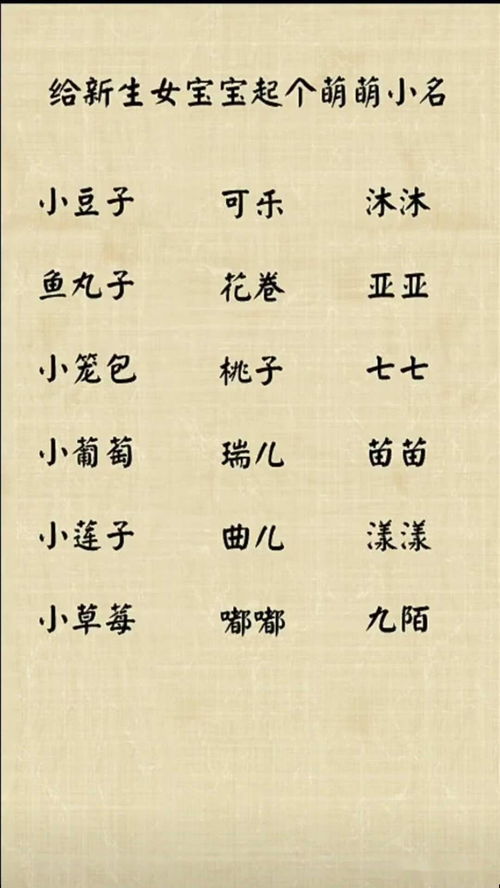 给新生女宝宝起个萌萌小名
小豆子 可乐 沐沐
鱼丸子 花卷 亚亚
小笼包 桃子 七七
小葡萄 瑞儿 苗苗
小莲子 曲儿 漾漾
小草莓 嘟嘟 九陌